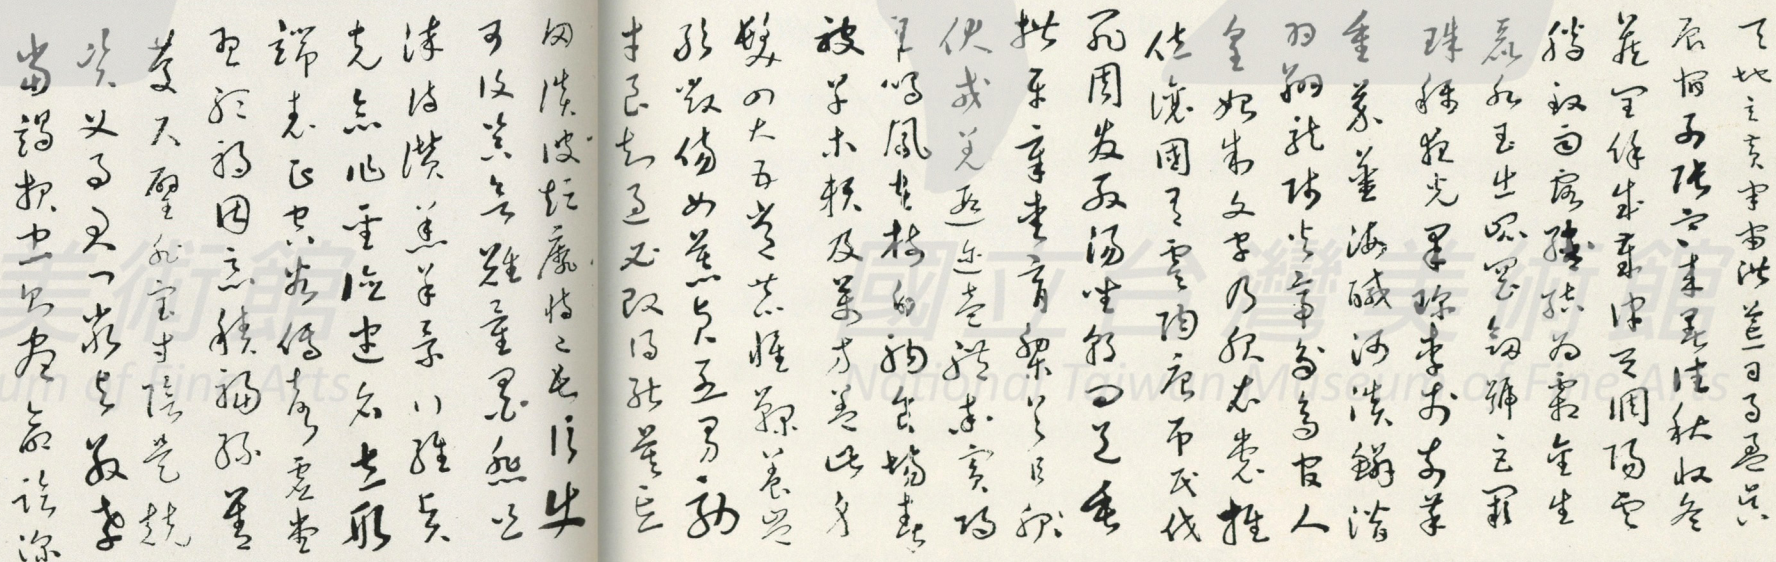 天地玄黃宇宙洪荒日月盈昃
辰宿列張寒來暑往秋收冬
藏閏餘成歲律呂調陽雲
騰致雨露結為霜金生
麗水玉出崑岡劍號巨闕
珠稱夜光果珍李柰菜
重芥薑海鹹河淡鱗潛
羽翔龍師火帝鳥官人
皇始制文字乃服衣裳推
位讓國有虞陶唐弔民伐
罪周發殷湯坐朝問道垂
拱平章愛育黎首臣服
伏戎羌遐邇壹體率賓歸
王鳴鳳在樹白駒食場化
被草木賴及萬方蓋此身
髮四大五常恭惟鞠養豈
敢毀傷女慕貞潔男効
才良知過必改得能莫忘
罔談彼短靡恃己長信使
可覆器欲難量墨悲絲
染詩讚羔羊景行維賢
克念作聖德建名立形
端表正空谷傳聲虛堂
習聽禍因惡積福緣善
慶尺璧非寶寸陰是競
資父事君曰嚴與敬孝
當竭力忠則盡命臨深
國立台灣美術館
National Taiwan Museum of Fine Arts
美術館
um of Fine Arts